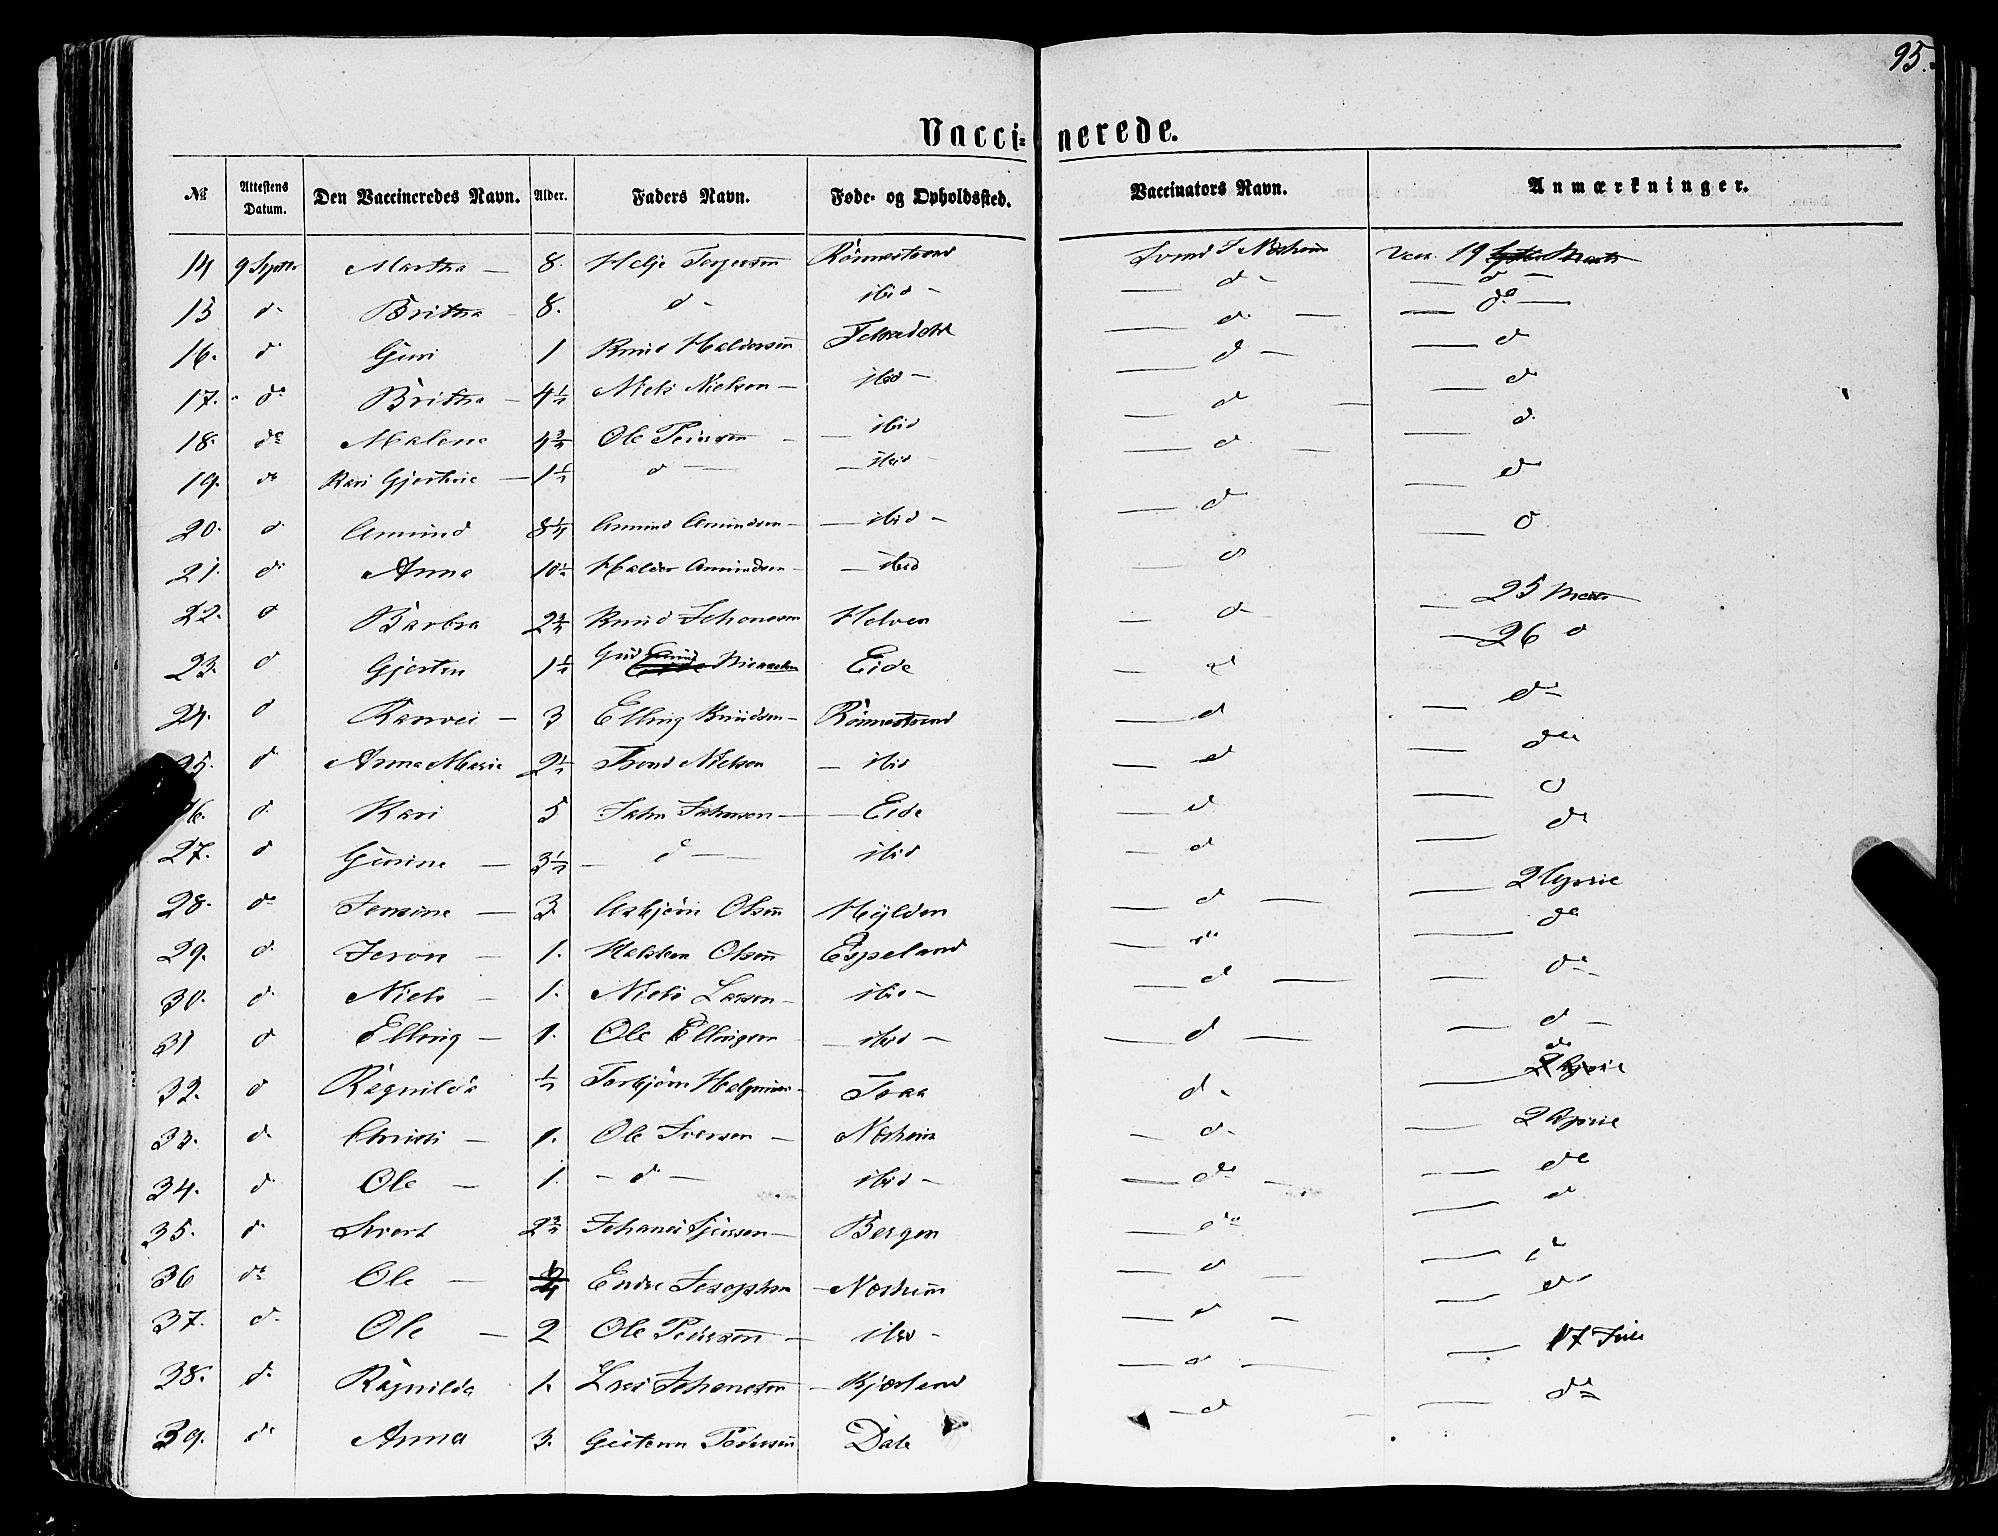 95.
Vaccinerede.
№ Attestens Datum. Den Vaccineredes Navn. Alder. Faders Navn. Føde- og Opholdssted. Vaccinators Navn. Anmærkninger.
14 9 Septbr Martha — 8. Helje Torgersen Rönnestrand Svend S Næsheim Vacc. 19
15 d– Britha 8. d– ibid – — d – — d —
16. d Guri 1 Knud Haldorsen — d — — d
17. do Britha – 4½ Niels Nielsen – ibid – — d – — d
18. do Malene 4¾ Ole Peersen – — ibid — d — — d
19. do Kari Gjertine — 1½ d — — ibid – — d — — d
20. d Amund 8¼ Amund Amundsen – — ibid – — d — d
21. d Anna 10½ Haldor Amundsen – — ibid d d
22. d Barbra 2¾ Knud Johanesen Helven — d — 25 Marts
23. d Gjerten 1½ Eide — d — 26 d
24. d Ranvei – 3 Elling Knudsen – Rönnestrand — d — d
25. d Anna Marie 2½ Trond Nielsen — ibid — d — do
26. d Kari 5 John Johnsen — — Eide — d — d
27. d Gurine — 3½ – d — ibid — d — d
28. do Jensine — 3. Asbjörn Olsen Hylden — d — — 2 April
29. d Jeron — 1. Halsten Olsen Espeland — d — do
30. d Niels – 1. Niels Larsen – ibid – — d — — do
31 d Elling – 1. Ole Ellingsen — ibid – — d — — d –
32. d Ragnilda ½ Torbjörn Traa d – — do
33. d Christi – 1. Ole Iversen – Næsheim — d — 2 April
34. d Ole – 1. – d – ibid – — do – — do
35. d Sivert 2¾ Johanes Bergen — do — d
36 do Ole — Endre Josephsen – Næsheim — d — — d
37. d Ole — 2 Ole Peersen – ibid – — d – — d
38. d Ragnilda 1. Lars Johanesen – Kjærland — d — — 17 Juli
39. d Anna 3. Guttorm Pedersen Dale — d — do